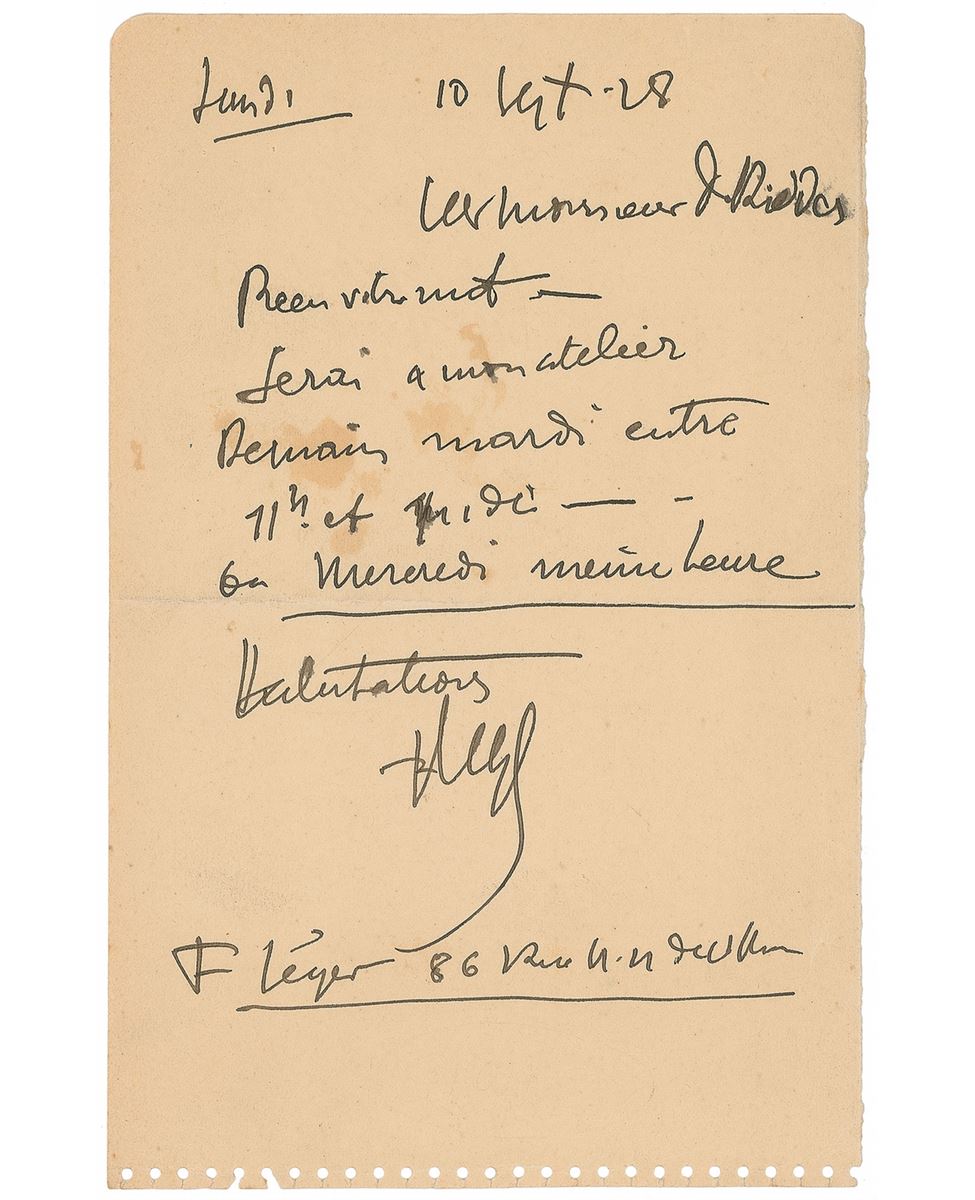 Lundi 10 Sept - 28
Cher Monsieur de
Recu votre mot -
Serai a mon atelier
Demain mardi entre
11h et midi - -
ou Mercredi meme heure
Salutations
F Léger 86 Rue N. D des Ch